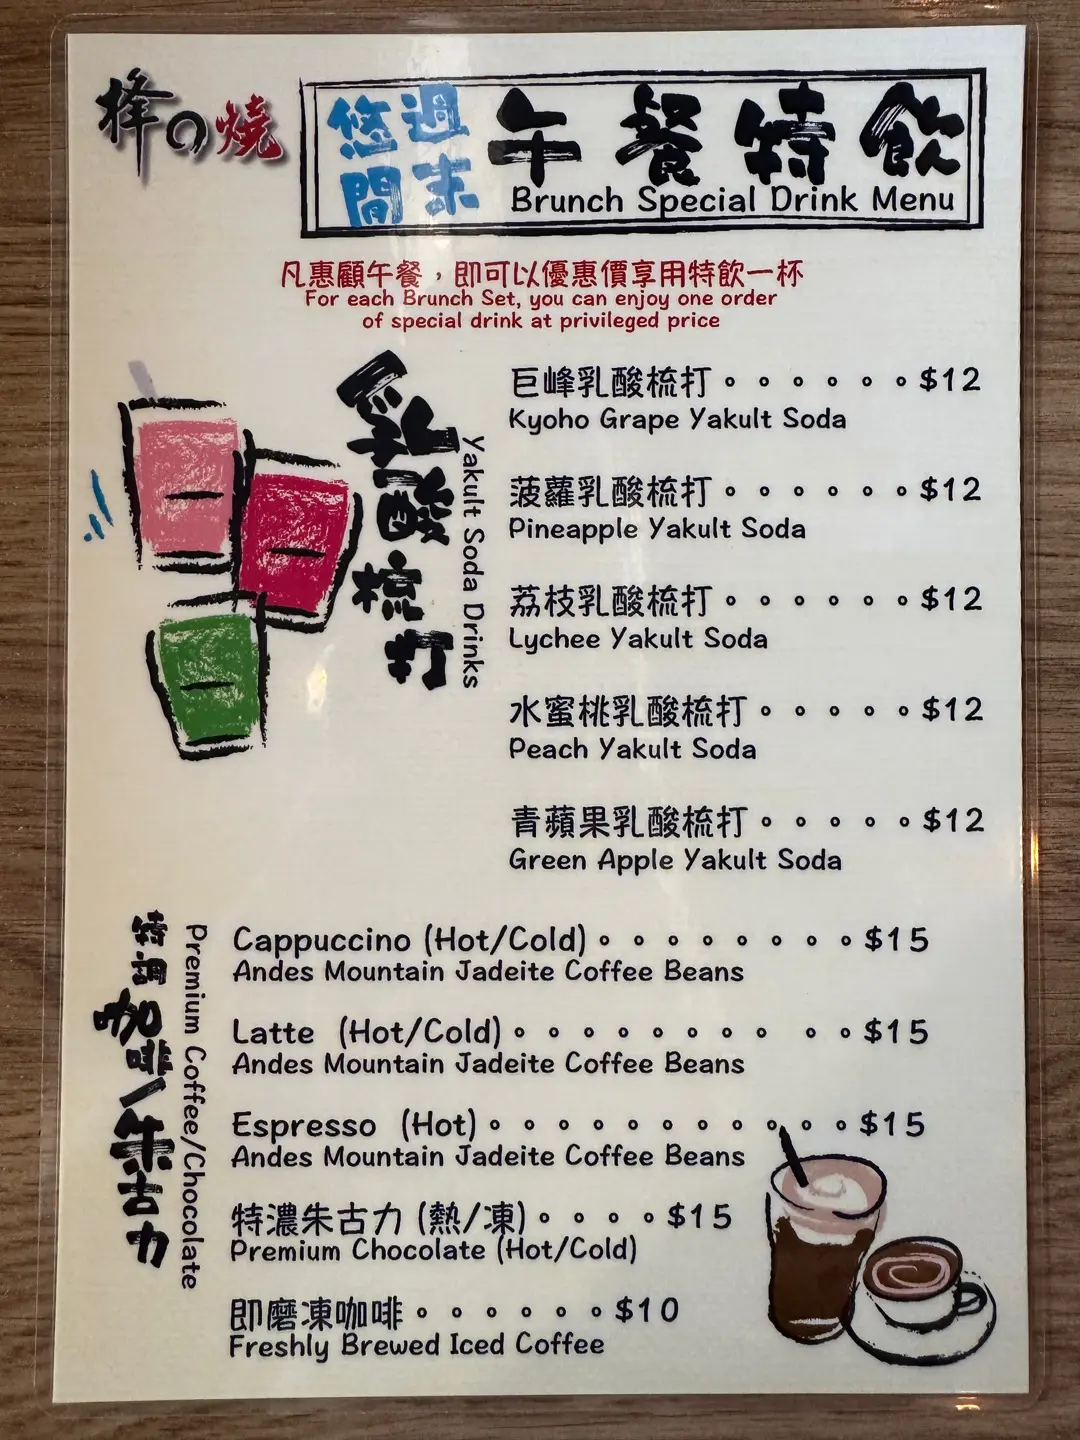 㷨の燒
悠閒週末
午餐特飲
Brunch Special Drink Menu
凡惠顧午餐，即可以優惠價享用特飲一杯
For each Brunch Set, you can enjoy one order
of special drink at privileged price
乳酸梳打
Yakult Soda Drinks
巨峰乳酸梳打。。。。。。$12
Kyoho Grape Yakult Soda
菠蘿乳酸梳打。。。。。。$12
Pineapple Yakult Soda
荔枝乳酸梳打。。。。。。$12
Lychee Yakult Soda
水蜜桃乳酸梳打。。。。。$12
Peach Yakult Soda
青蘋果乳酸梳打。。。。。$12
Green Apple Yakult Soda
特調咖啡/朱古力
Premium Coffee/Chocolate
Cappuccino (Hot/Cold)。。。。。。。。$15
Andes Mountain Jadeite Coffee Beans
Latte (Hot/Cold)。。。。。。。。 。。$15
Andes Mountain Jadeite Coffee Beans
Espresso (Hot)。。。。。。。。。。。$15
Andes Mountain Jadeite Coffee Beans
特濃朱古力 (熱/凍)。。。。$15
Premium Chocolate (Hot/Cold)
即磨凍咖啡。。。。。。$10
Freshly Brewed Iced Coffee